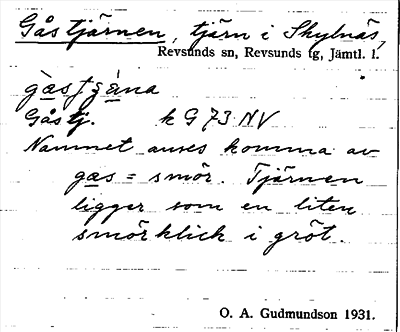 Gåstjärnen, tjärn i Skylnäs,
Revsunds sn, Revsunds tg, Jämtl. l.
Gåstj. k G 73 NV
Namnet anses komma av
gas = smör. Tjärnen
ligger som en liten
smörklick i gröt.
O. A. Gudmundson 1931.